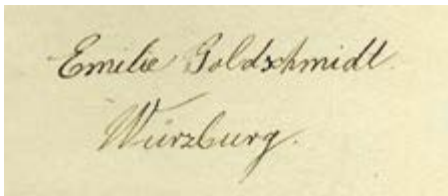 Emilie Goldschmidt.
Würzburg.